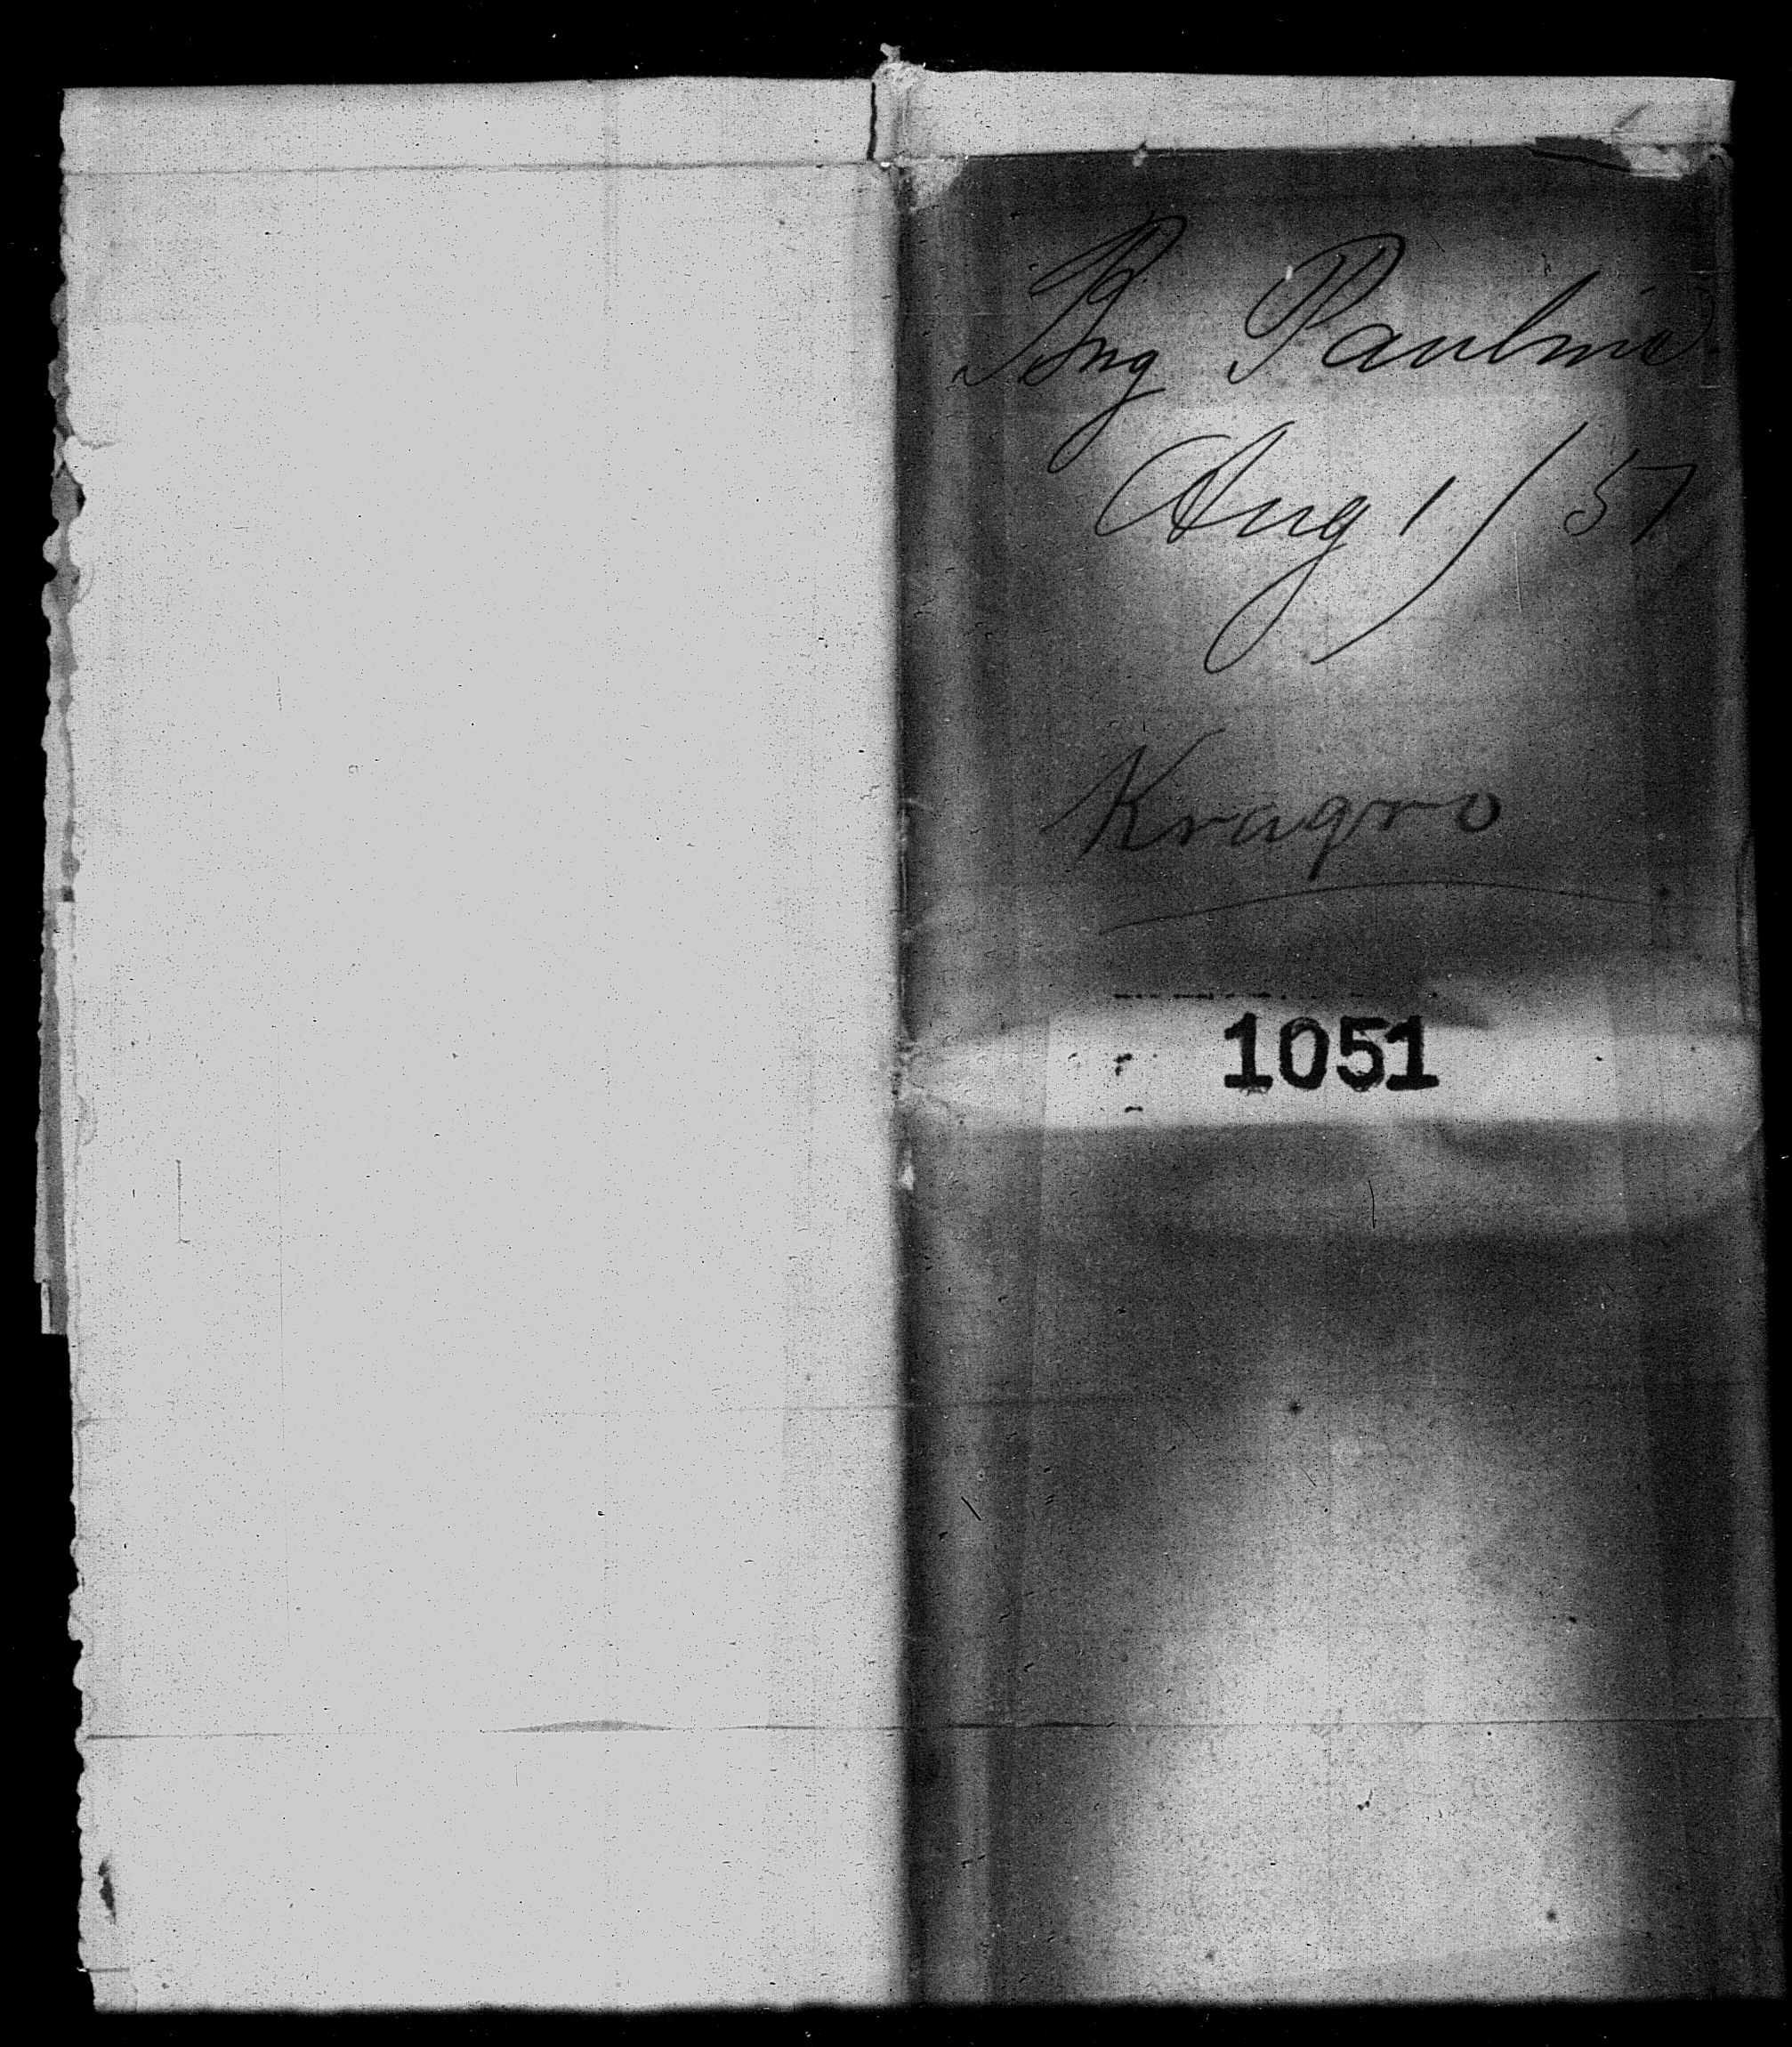 Bng Pauline
Aug 1 / 57
Kragro
1051